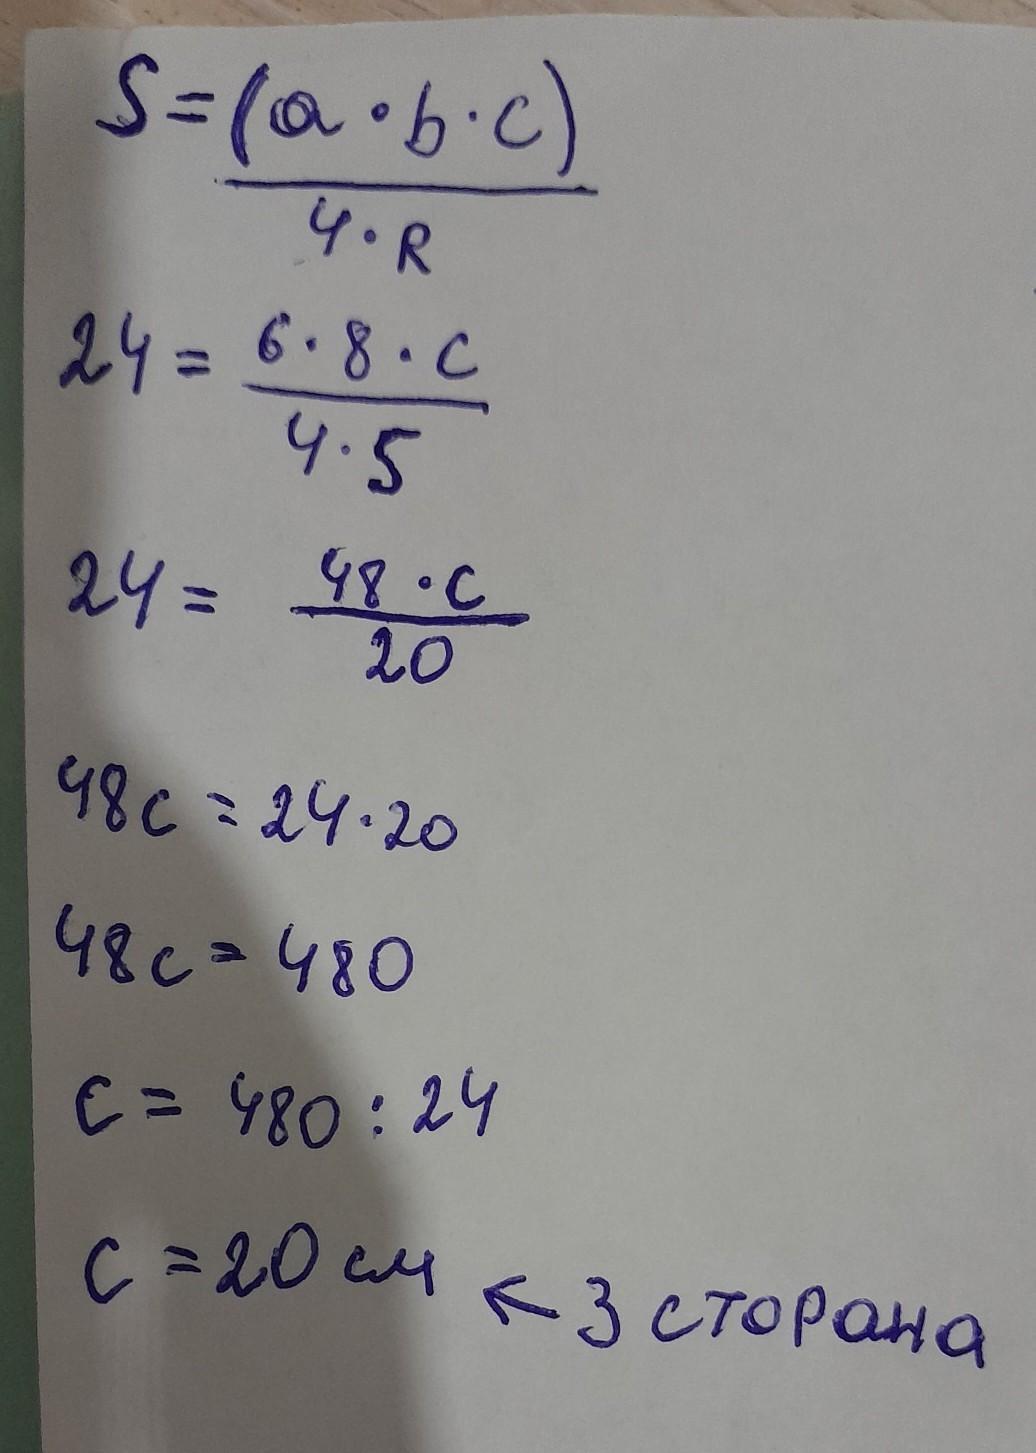 S = (a · b · c)
4 · R
24 = 6 · 8 · c
4 · 5
24 = 48 · c
20
48c = 24 · 20
48c = 480
c = 480 : 24
c = 20 см ← 3 сторана